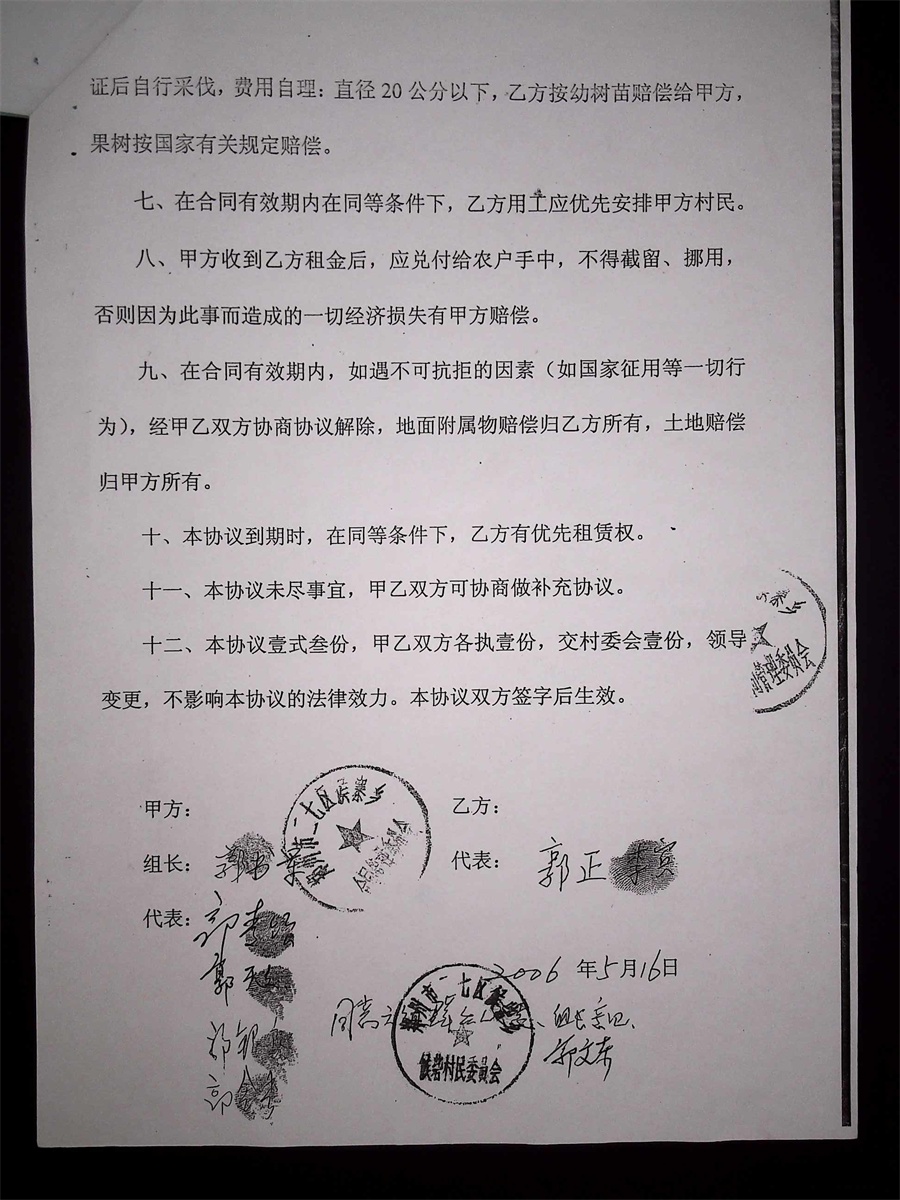 证后自行采伐，费用自理：直径20公分以下，乙方按幼树苗赔偿给甲方，
果树按国家有关规定赔偿。
七、在合同有效期内在同等条件下，乙方用工应优先安排甲方村民。
八、甲方收到乙方租金后，应兑付给农户手中，不得截留、挪用，
否则因为此事而造成的一切经济损失有甲方赔偿。
九、在合同有效期内，如遇不可抗拒的因素（如国家征用等一切行
为），经甲乙双方协商协议解除，地面附属物赔偿归乙方所有，土地赔偿
归甲方所有。
十、本协议到期时，在同等条件下，乙方有优先租赁权。
十一、本协议未尽事宜，甲乙双方可协商做补充协议。
十二、本协议壹式叁份，甲乙双方各执壹份，交村委会壹份，领导
变更，不影响本协议的法律效力。本协议双方签字后生效。
管理委员会
甲方：
乙方：
州市二七区侯寨乡
组长：
代表：郭正
代表：
2006年5月16日
郑州市二七区侯寨乡
村民委员会
郭文东